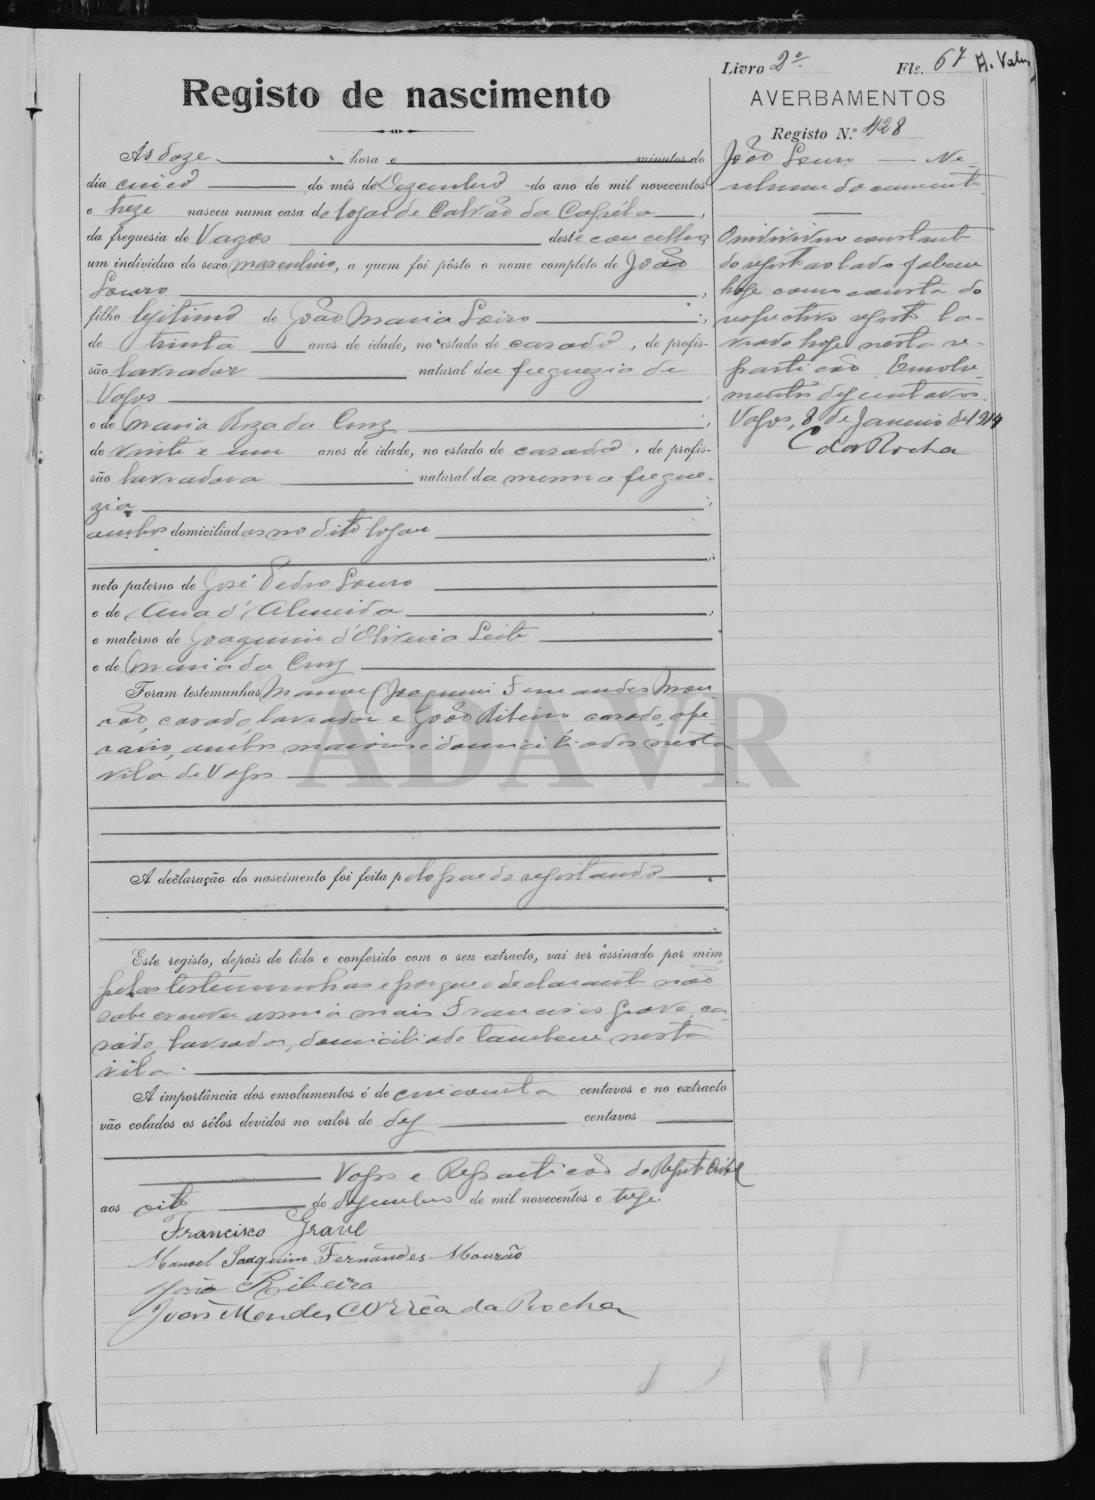 Livro 2º Fls. 67 A. Valeu
Registo de nascimento
AVERBAMENTOS
Registo N.º 428
Ás doze hora e minutos do
dia cinco do mês de Dezembro do ano de mil novecentos
e treze nasceu numa casa do logar de Calvão da Capéla,
da freguesia de Vagos deste concelho,
um indivíduo do sexo masculino, a quem foi pôsto o nome completo de João
Louro,
filho legitimo de João Maria Loiro,
de trinta anos de idade, no estado de casado, de profis-
são lavrador natural da freguezia de
Vagos,
e de Maria Roza da Cruz,
de vinte e um anos de idade, no estado de casada, de profis-
são lavradora natural da mesma fregue-
zia,
ambos domiciliados no dito logar
neto paterno de José Pedro Louro
e de Ana d'Almeida,
e materno de Joaquim d'Oliveira Leite
e de Maria da Cruz
Foram testemunhas Manoel Joaquim Fernandes Mou-
rão, casado, lavrador e João Ribeiro, casado, ope-
rario, ambos maiores e domiciliados nesta
vila de Vagos
ADAVR
A declaração do nascimento foi feita pelo pae do registando
Este registo, depois de lido e conferido com o seu extracto, vai ser assinado por mim,
pelas testemunhas e porque o declarante não
sabe escrever assina mais Francisco Grave, ca-
sado, lavrador, domiciliado tambem nesta
vila.
A importância dos emolumentos é de cincoenta centavos e no extracto
vão colados os sêlos devidos no valor de dez centavos
Vagos e Repartição do Registo Civil
aos oito de Dezembro de mil novecentos e treze.
Francisco Grave
Manoel Joaquim Fernandes Mourão
João Ribeiro
João Mendes Corrêa da Rocha
João Louro — Ne-
nhum documento.
O individuo constante
do registo ao lado faleceu
hoje como consta do
respectivo registo la-
vrado hoje nesta re-
partição. Emolu-
mentos dez centavos.
Vagos, 8 de Janeiro de 1914
C da Rocha